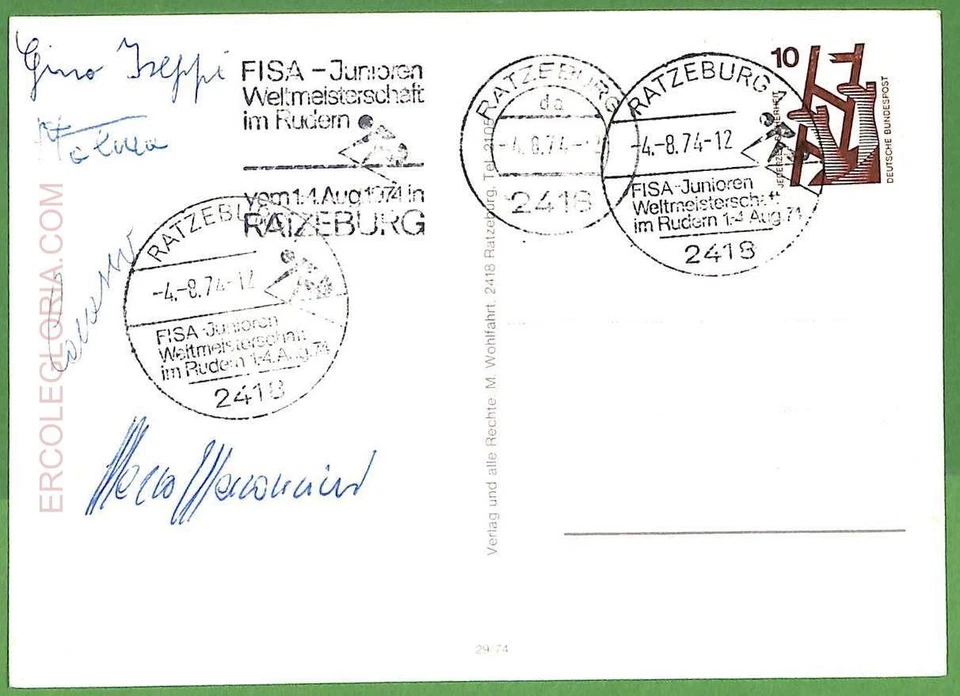 Gino Iseppi
FISA - Junioren
Weltmeisterschaft
im Rudern
vom 1.-4. Aug 1974 in
RATZEBURG
RATZEBURG
da
-4.-8.74-
2418
RATZEBURG 1
-4.-8.74-12
FISA-Junioren
Weltmeisterschaft
im Rudern 1.-4. Aug. 74
2418
10
JEDERZEIT SICHERHEIT
DEUTSCHE BUNDESPOST
RATZEBURG
-4.-8.74-12
FISA-Junioren
Weltmeisterschaft
im Rudern 1.-4. Aug. 74
2418
ERCOLEGLORIA.COM
Verlag und alle Rechte M. Wohlfahrt, 2418 Ratzeburg, Tel.
29/74